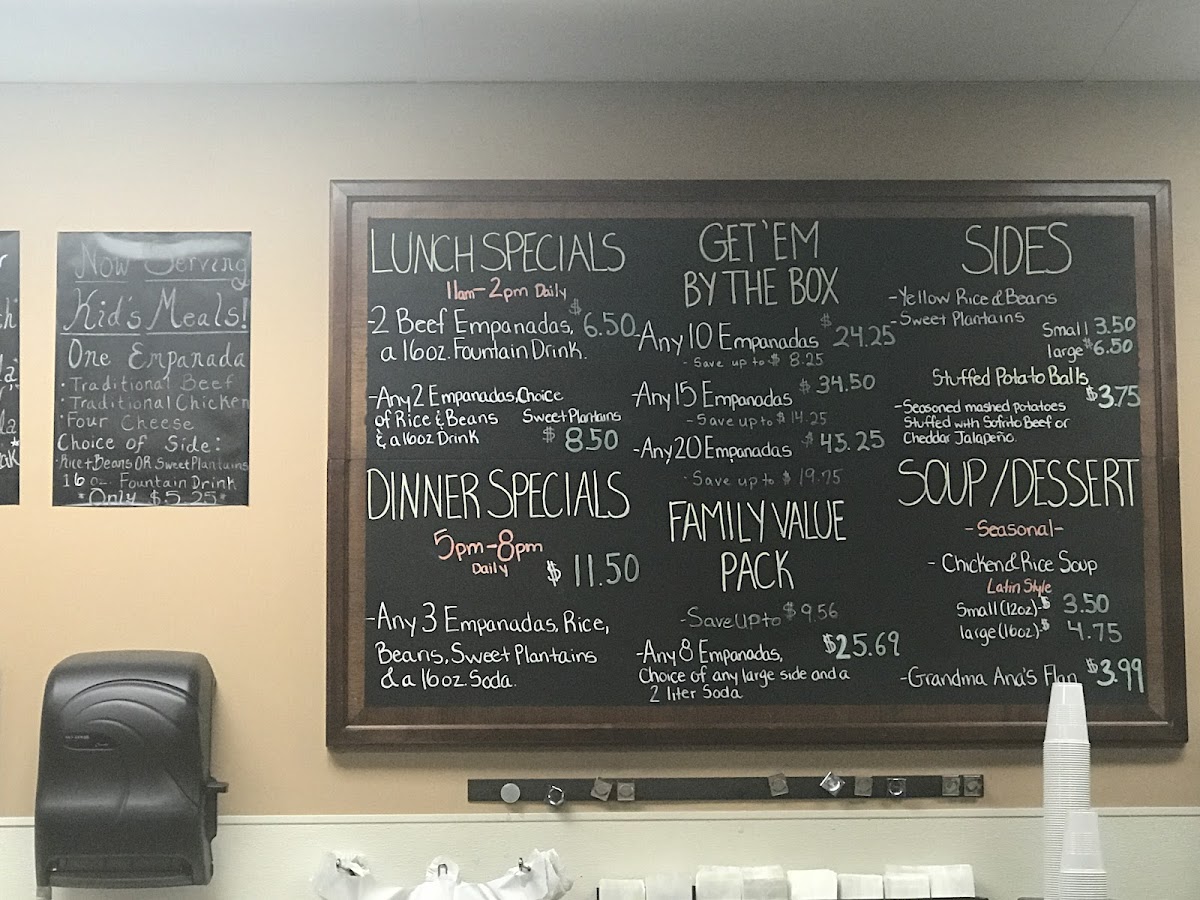 Now Serving
Kid's Meals!
One Empanada
• Traditional Beef
• Traditional Chicken
• Four Cheese
Choice of Side:
Rice + Beans OR Sweet Plantains
16 oz. Fountain Drink
*Only $5.25*
LUNCH SPECIALS
11am-2pm Daily
-2 Beef Empanadas, $6.50
a 16oz. Fountain Drink.
-Any 2 Empanadas, Choice
of Rice & Beans Sweet Plantains
& a 16oz Drink $ 8.50
DINNER SPECIALS
5pm-8pm
Daily
$ 11.50
-Any 3 Empanadas, Rice,
Beans, Sweet Plantains
& a 16oz. Soda.
GET 'EM
BY THE BOX
-Any 10 Empanadas $24.25
- Save up to $ 8.25
-Any 15 Empanadas $34.50
- Save up to $ 14.25
-Any 20 Empanadas $45.25
- Save up to $ 19.75
FAMILY VALUE
PACK
-Save up to $9.56
-Any 8 Empanadas, $25.69
Choice of any large side and a
2 liter Soda
SIDES
-Yellow Rice & Beans
-Sweet Plantains
Small 3.50
large $6.50
Stuffed Potato Balls
$3.75
-Seasoned mashed potatoes
Stuffed with Sofrito Beef or
Cheddar Jalapeño.
SOUP/DESSERT
-Seasonal-
- Chicken & Rice Soup
Latin Style
Small (12oz)-$ 3.50
large (16oz)-$ 4.75
-Grandma Ana's Flan $3.99